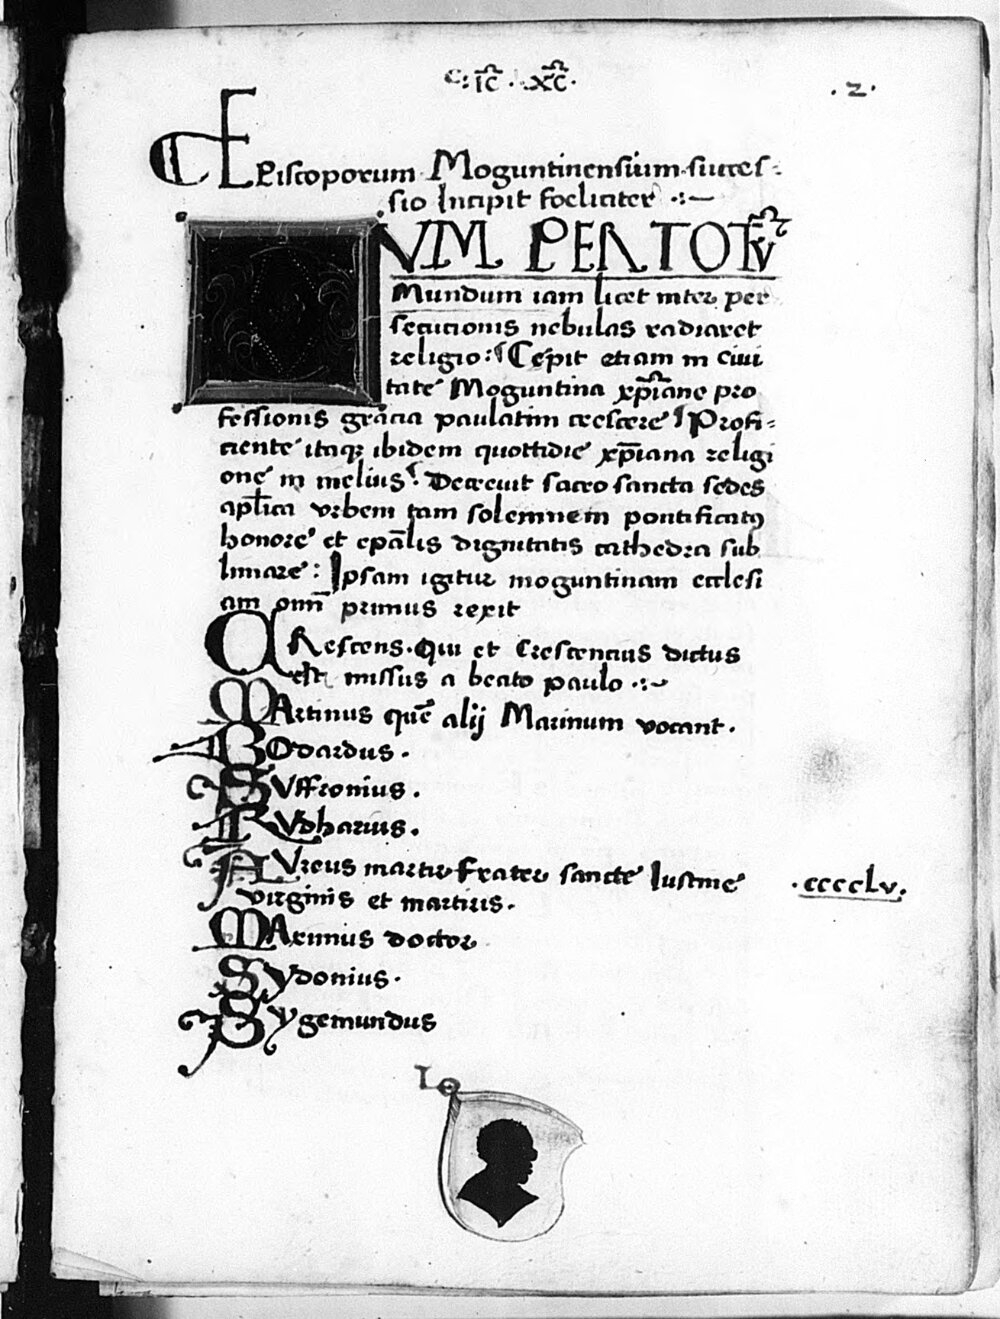 ·2·
EPiscoporum Moguntinensium succes-
sio Incipit foeliciter
VM PER TOTV̄
Mundum iam licet inter per
secucionis nebulas radiaret
religio: Cepit etiam in ciui
tate Moguntina xp̄iane pro
fessionis gracia paulatim crescere Profi-
ciente itaqꝫ ibidem quottidie xp̄iana religi
one in melius. Decreuit sacro sancta sedes
apl̄ica vrbem tam solemnem pontificatꝰ
honore et ep̄alis dignitatis cathedra sub
limare: Ipsam igitur moguntinam ecclesi
am om̄ primus rexit
CRescens. Qui et Crescencius dictus
est missus a beato paulo
MArtinus quē alij Marinum vocant.
BOdardus.
SVffronius.
RVdharius.
AVreus martir frater sancte Iustine ·ccccLv.
virginis et martiris.
MAximus doctor
SYdonius.
SYgemundus